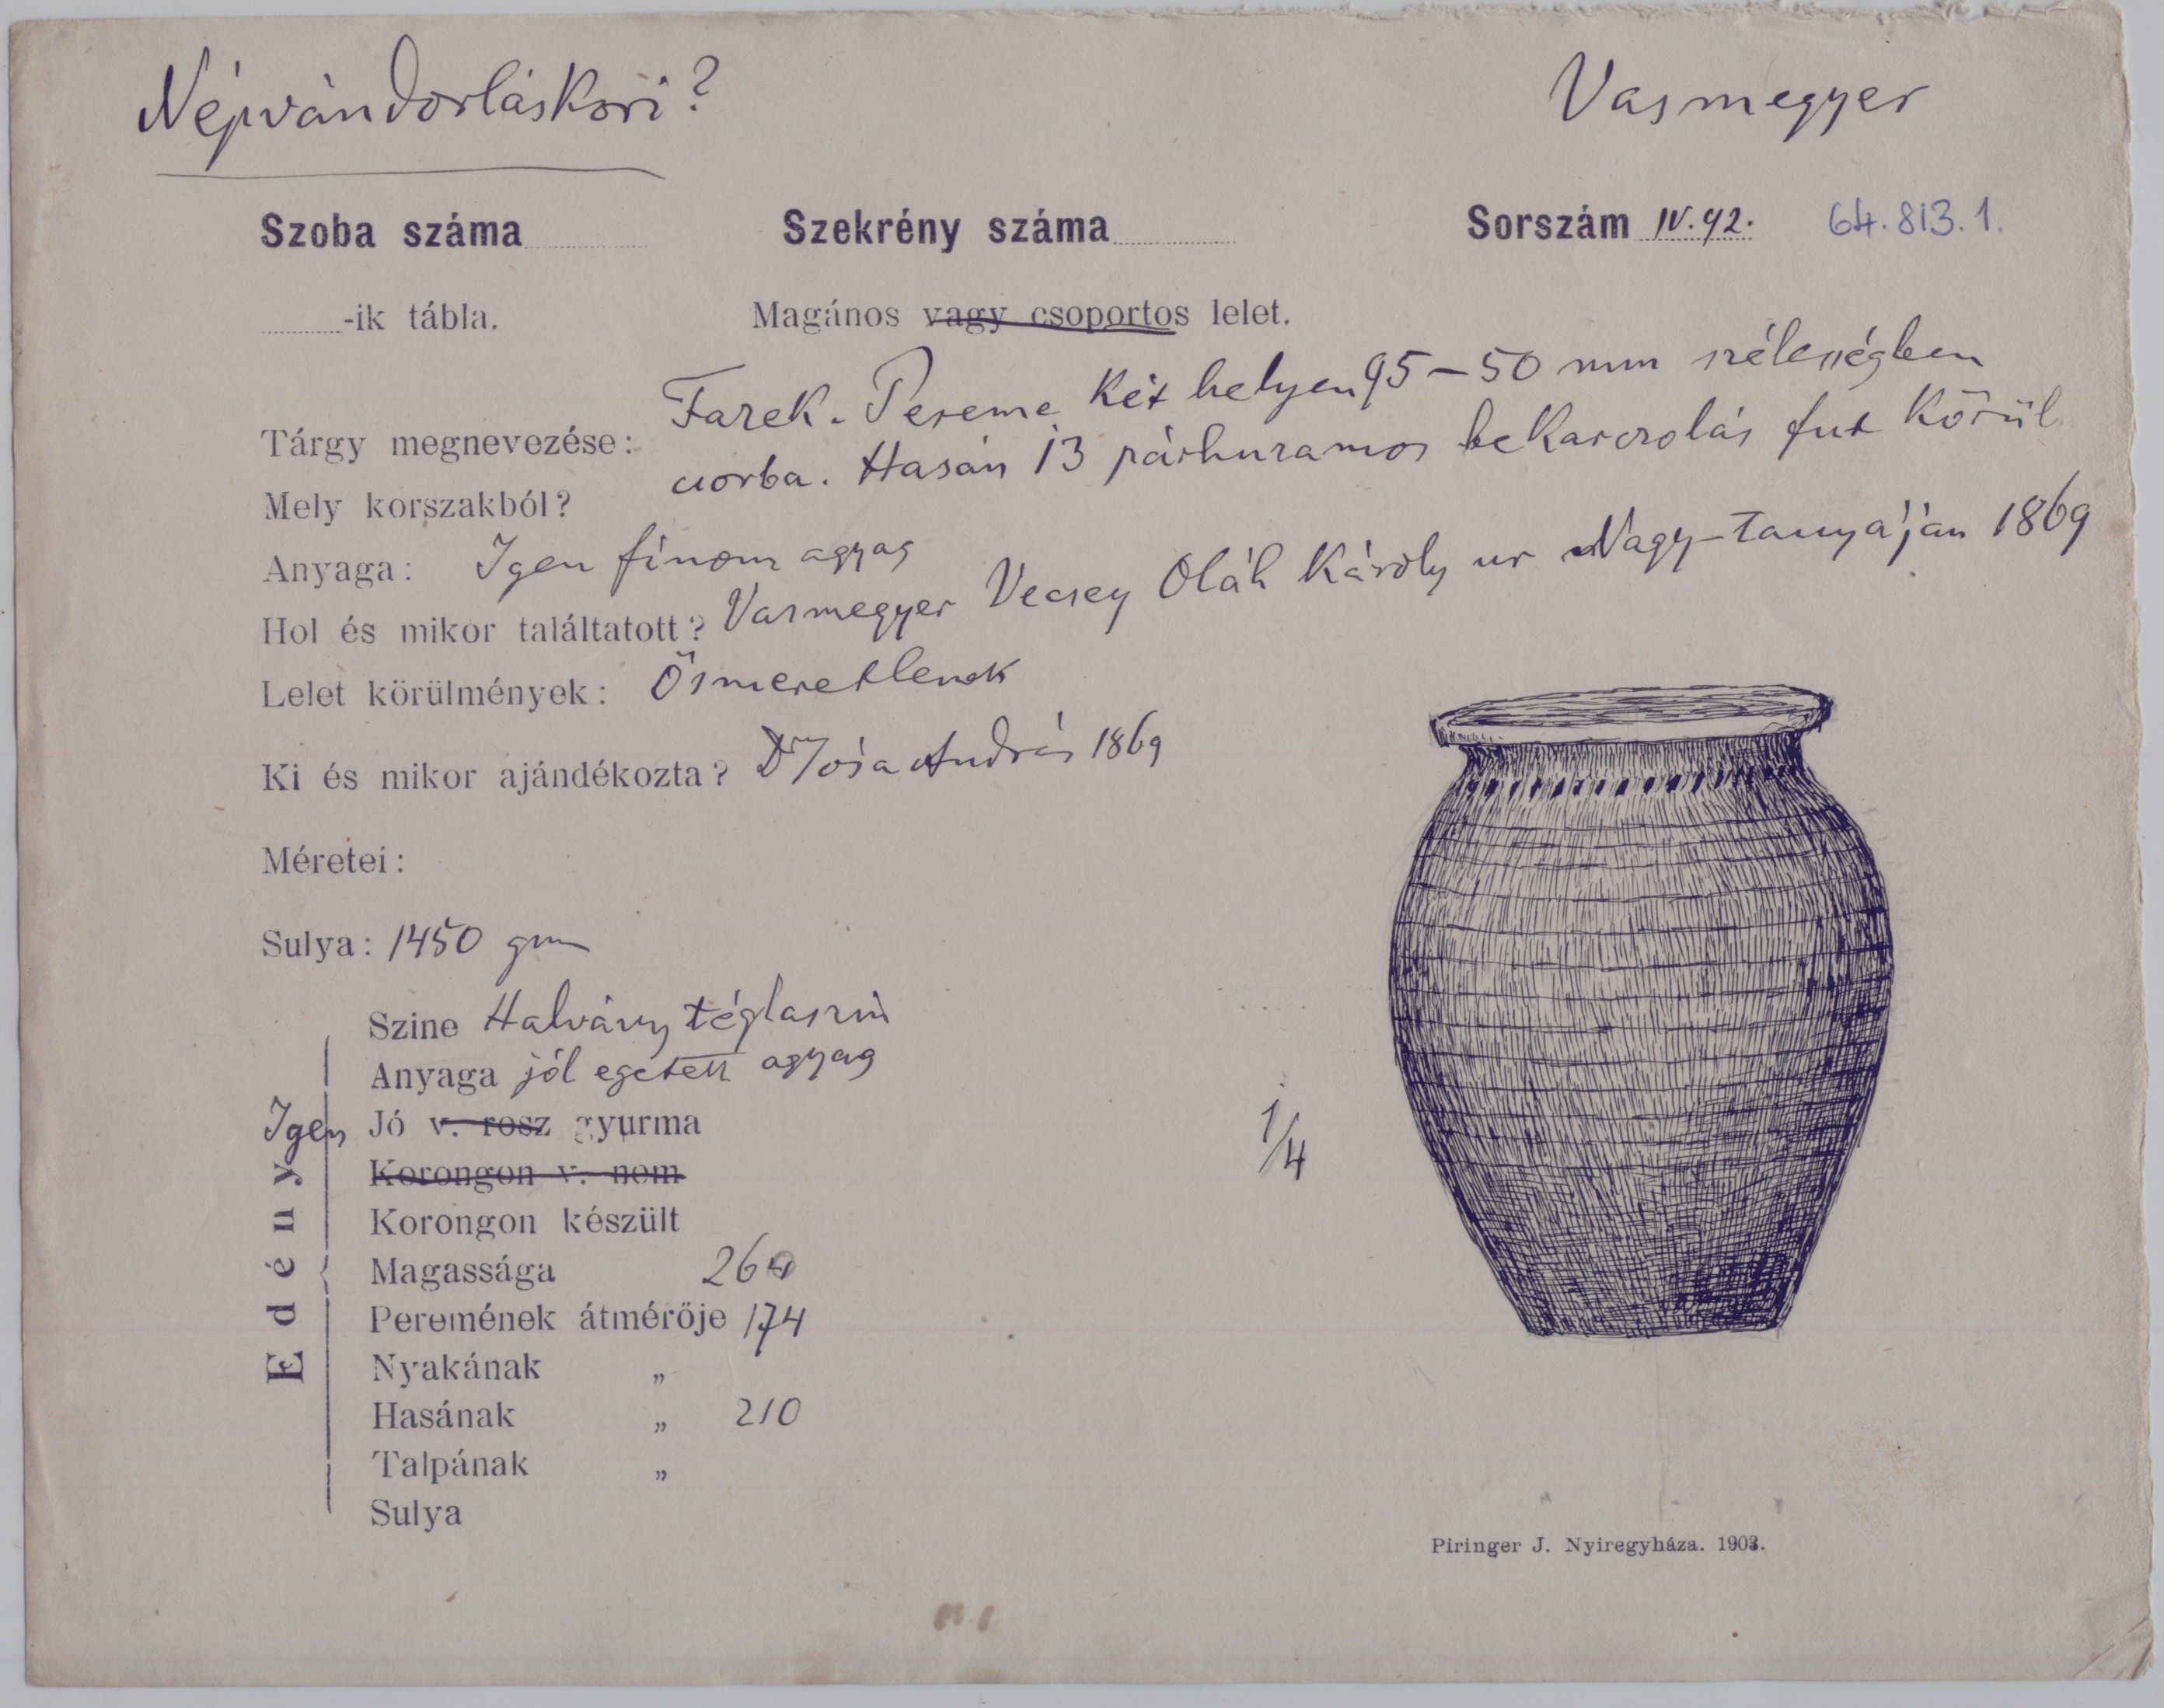 Népvándorláskori?
Vasmegyer
Szoba száma
Szekrény száma
Sorszám IV. 92. 64.813.1.
-ik tábla.
Magános vagy csoportos lelet.
Tárgy megnevezése: Fazek. Pereme két helyen 45–50 mm szélességben
csorba. Hasán 13 párhuzamos bekarczolás fut körül
Mely korszakból?
Anyaga: Igen finom agyag
Hol és mikor találtatott? Vasmegyer Vecsey Oláh Károly ur Nagy-Tanyáján 1869
Lelet körülmények: Ösmeretlenek
Ki és mikor ajándékozta? Dr Jósa András 1869
Méretei:
Sulya: 1450 gm
Edény
Szine Halvány téglaszin
Anyaga jól egetett agyag
Igen Jó v. rosz gyurma
Korongon v. nem
Korongon készült
Magassága 264
Peremének átmérője 174
Nyakának „
Hasának „ 210
Talpának „
Sulya
1/4
Piringer J. Nyiregyháza. 1903.